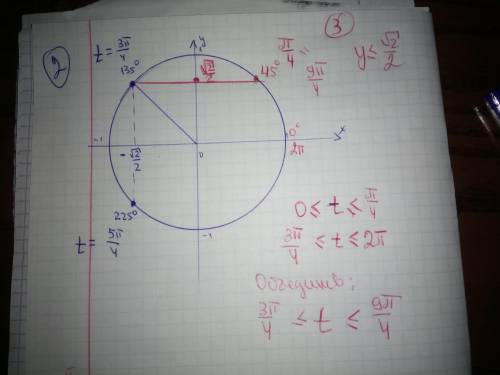 2
3
t = 3π/4
135°
y
1
√2/2
π/4 = 9π/4
45°
y ≤ √2/2
-1
-√2/2
0
0°
2π
x
225°
t = 5π/4
-1
0 ≤ t ≤ π/4
3π/4 ≤ t ≤ 2π
Объединив:
3π/4 ≤ t ≤ 9π/4